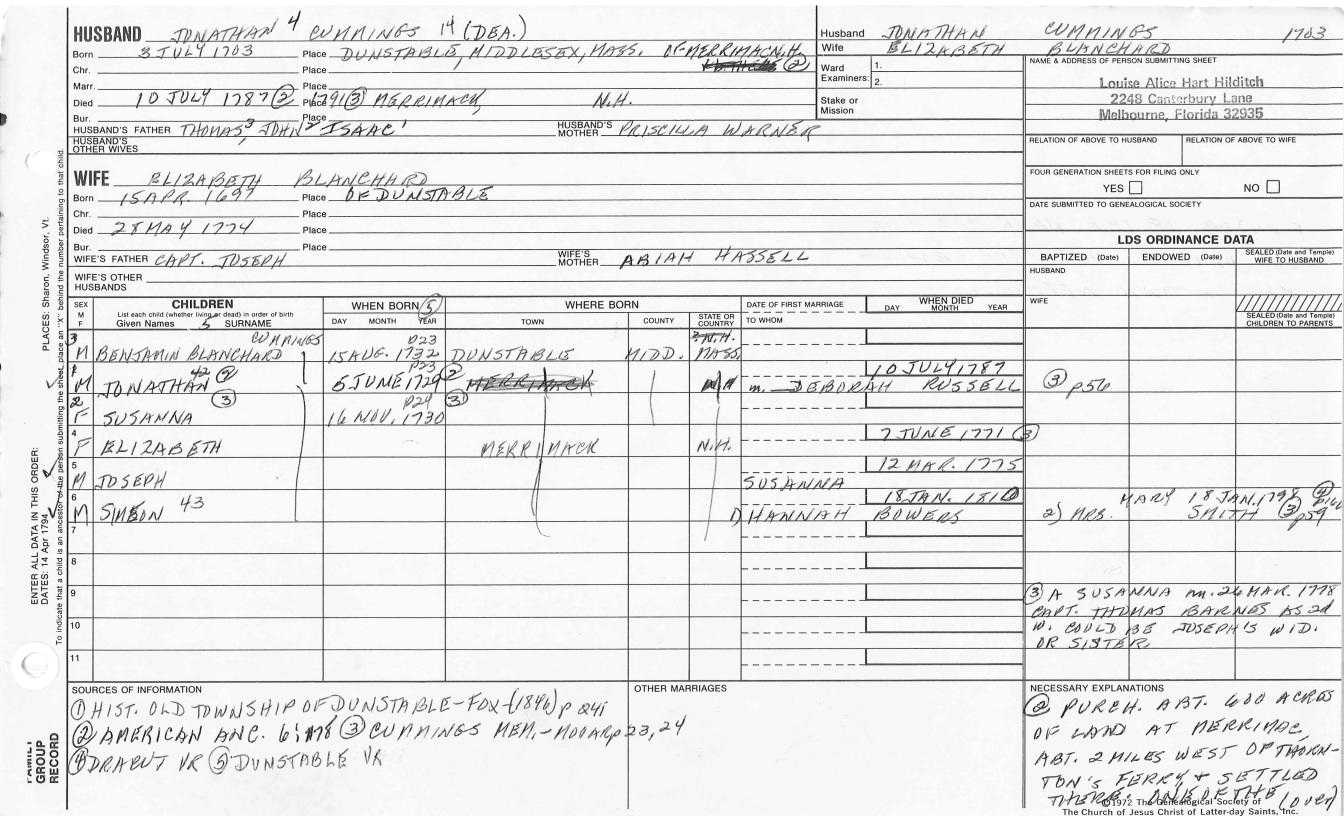 HUSBAND JONATHAN 4 CUMMINGS 14 (DEA.)
Born 3 JULY 1703 Place DUNSTABLE, MIDDLESEX, MASS. OF MERRIMAC N.H.
Chr. Place (2)
Marr. Place
Died 10 JULY 1787 (2) Place 1791 (3) MERRIMACK, N.H.
Bur. Place
HUSBAND'S FATHER THOMAS 3, JOHN 2 ISAAC 1 HUSBAND'S MOTHER PRISCILLA WARNER
HUSBAND'S OTHER WIVES
WIFE ELIZABETH BLANCHARD
Born 15 APR. 1697 Place OF DUNSTABLE
Chr. Place
Died 28 MAY 1774 Place
Bur. Place
WIFE'S FATHER CAPT. JOSEPH WIFE'S MOTHER ABIAH HASSELL
WIFE'S OTHER HUSBANDS
Husband JONATHAN CUMMINGS 1703
Wife ELIZABETH BLANCHARD
Ward Examiners: 1.
2.
Stake or Mission
NAME & ADDRESS OF PERSON SUBMITTING SHEET
Louise Alice Hart Hilditch
2248 Canterbury Lane
Melbourne, Florida 32935
RELATION OF ABOVE TO HUSBAND RELATION OF ABOVE TO WIFE
FOUR GENERATION SHEETS FOR FILING ONLY
YES NO
DATE SUBMITTED TO GENEALOGICAL SOCIETY
LDS ORDINANCE DATA
BAPTIZED (Date) ENDOWED (Date) SEALED (Date and Temple) WIFE TO HUSBAND
HUSBAND
WIFE
SEALED (Date and Temple) CHILDREN TO PARENTS
SEX M F CHILDREN WHEN BORN (5) WHERE BORN DATE OF FIRST MARRIAGE WHEN DIED
List each child (whether living or dead) in order of birth
Given Names 5 SURNAME DAY MONTH YEAR TOWN COUNTY STATE OR COUNTRY TO WHOM DAY MONTH YEAR
3 CUMMINGS P23 N.H.
M BENJAMIN BLANCHARD 15 AUG. 1732 DUNSTABLE MIDD. MASS.
1 42 (2) P23 (2) 10 JULY 1787
M JONATHAN 5 JUNE 1729 MERRIMACK N.H. m. DEBORAH RUSSELL (3) p56
2 (3) P24 (3)
F SUSANNA 16 NOV. 1730
4 7 JUNE 1771 (3)
F ELIZABETH MERRIMACK N.H.
5 12 MAR. 1775
M JOSEPH SUSANNA
6 43 18 JAN. 1810 MARY 18 JAN. 1798 (4)
M SIMEON 1) HANNAH BOWERS 2) MRS. SMITH (3) p59
7
8
9
10
11
(3) A SUSANNA m. 26 MAR. 1778
CAPT. THOMAS BARNES AS 2d
W. COULD BE JOSEPH'S WID.
OR SISTER.
SOURCES OF INFORMATION
(1) HIST. OLD TOWNSHIP OF DUNSTABLE-FOX-(1846) p 241
(2) AMERICAN ANC. 6:178 (3) CUMMINGS MEM.-MOOAR p 23, 24
(4) DRACUT VR (5) DUNSTABLE VR
OTHER MARRIAGES
NECESSARY EXPLANATIONS
(2) PURCH. ABT. 600 ACROS
OF LAND AT MERRIMAC,
ABT. 2 MILES WEST OF THORN-
TON'S FERRY & SETTLED
THERE. ONE OF THE (over)
©1972 The Genealogical Society of
The Church of Jesus Christ of Latter-day Saints, Inc.
ENTER ALL DATA IN THIS ORDER:
DATES: 14 Apr 1794 PLACES: Sharon, Windsor, Vt.
To indicate that a child is an ancestor of the person submitting the sheet, place an "X" behind the number pertaining to that child.
FAMILY GROUP RECORD